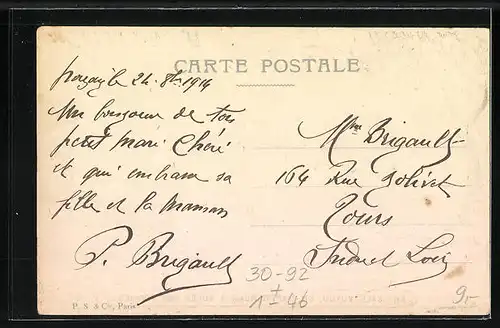 CARTE POSTALE
le 24. 8bre 1914
Un bonjour de ton
petit mari Chéri
et qui embrasse sa
fille et la maman
P. Brigault
Mme Brigault
164 Rue Jolivet
Tours
Indre et Loire
30-92
+
1-46
9.-
P. S. & Cie, Paris